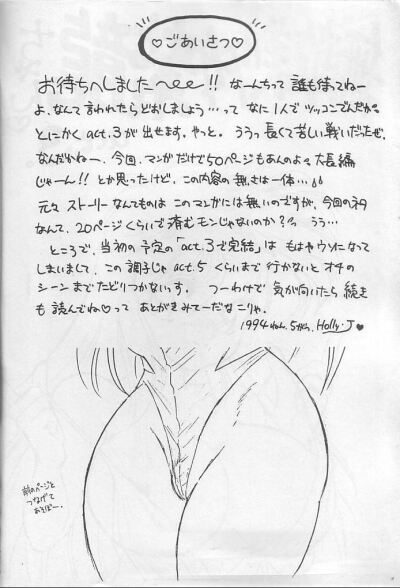 ♡ごあいさつ♡
お待ちへしました〜!! なーんちって 誰も待ってねー
よ、なんて言われたらどおしましょう…って なに1人でツッコンでんだか。
とにかく act.3が出せます。やっと。ううっ 長くて苦しい戦いだったぜ。
なんだかねー、今回、マンガだけで50ページもあんのよ。大長編
じゃーん!! とか思ったけど、この内容の無さは一体…
元々 ストーリーなんてものは このマンガには無いのですが、今回のネタ
なんて、20ページくらいで済むモンじゃないのか?? うう…
ところで、当初の予定の「act.3で完結」は もはやウソになって
しまいまして、この調子じゃ act.5 くらいまで 行かないと オチの
シーンまでたどりつかないっす。 つーわけで 気が向いたら 続き
も 読んでね♡って あとがきみてーだなこりゃ。
1994ねん.5がつ. Holly・J♥
前のページと
つなげて
あそぼー。